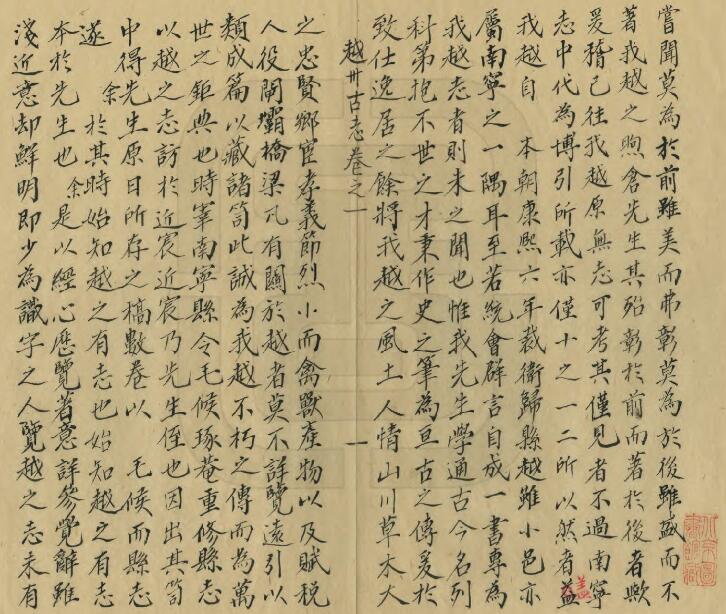 嘗聞莫為於前雖美而弗彰莫為於後雖盛而不
著我越之煦倉先生其殆彰於前而著於後者歟
爰稽已往我越原無志可考其僅見者不過南寧
志中代為博引所載亦僅十之一二所以然者益
蓋
我越自 本朝康熙六年裁衛歸縣越雖小邑亦
屬南寧之一隅耳至若統會群言自成一書專為
我越志者則未之聞也惟我先生學通古今名列
科第抱不世之才秉作史之筆為亘古之傳爰於
致仕逸居之餘將我越之風土人情山川草木大
越州古志卷之一
一
之忠賢鄉宦孝義節烈小而禽獸產物以及賦稅
人役閘壩橋梁凡有關於越者莫不詳覽遠引以
類成篇以藏諸笥此誠為我越不朽之傳而為萬
世之鉅典也時宰南寧縣令毛候琢菴重修縣志
以越之志訪於近宸近宸乃先生侄也因出其笥
中得先生原日所存之稿數卷以 毛候而縣志
遂 余於其時始知越之有志也始知越之有志
本於先生也 余是以經心歷覽著意詳參覺辭雖
淺近意却鮮明即少為識字之人覽越之志未有